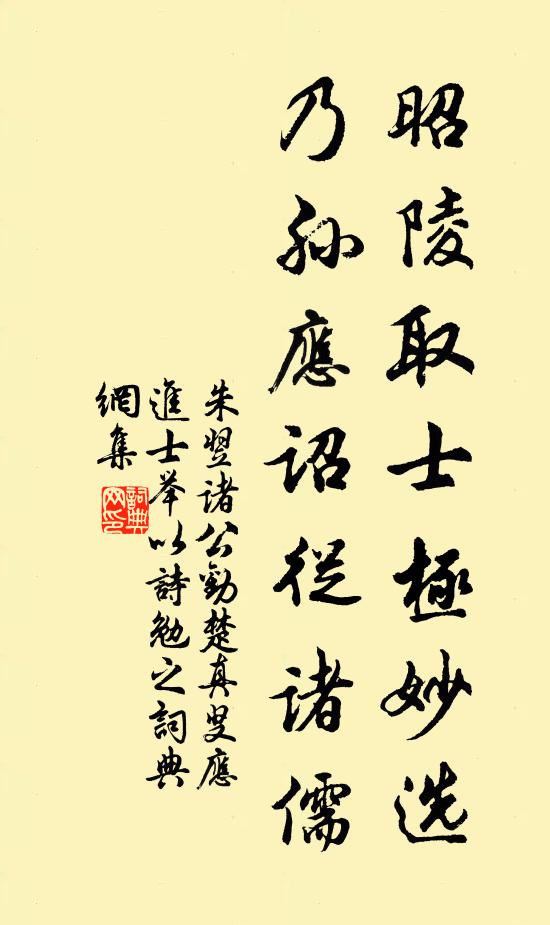 昭陵取士極妙选
乃孙應詔從諸儒
朱翌諸公勸楚真叟應
進士举以詩勉之詞典
網集
詞典
网印